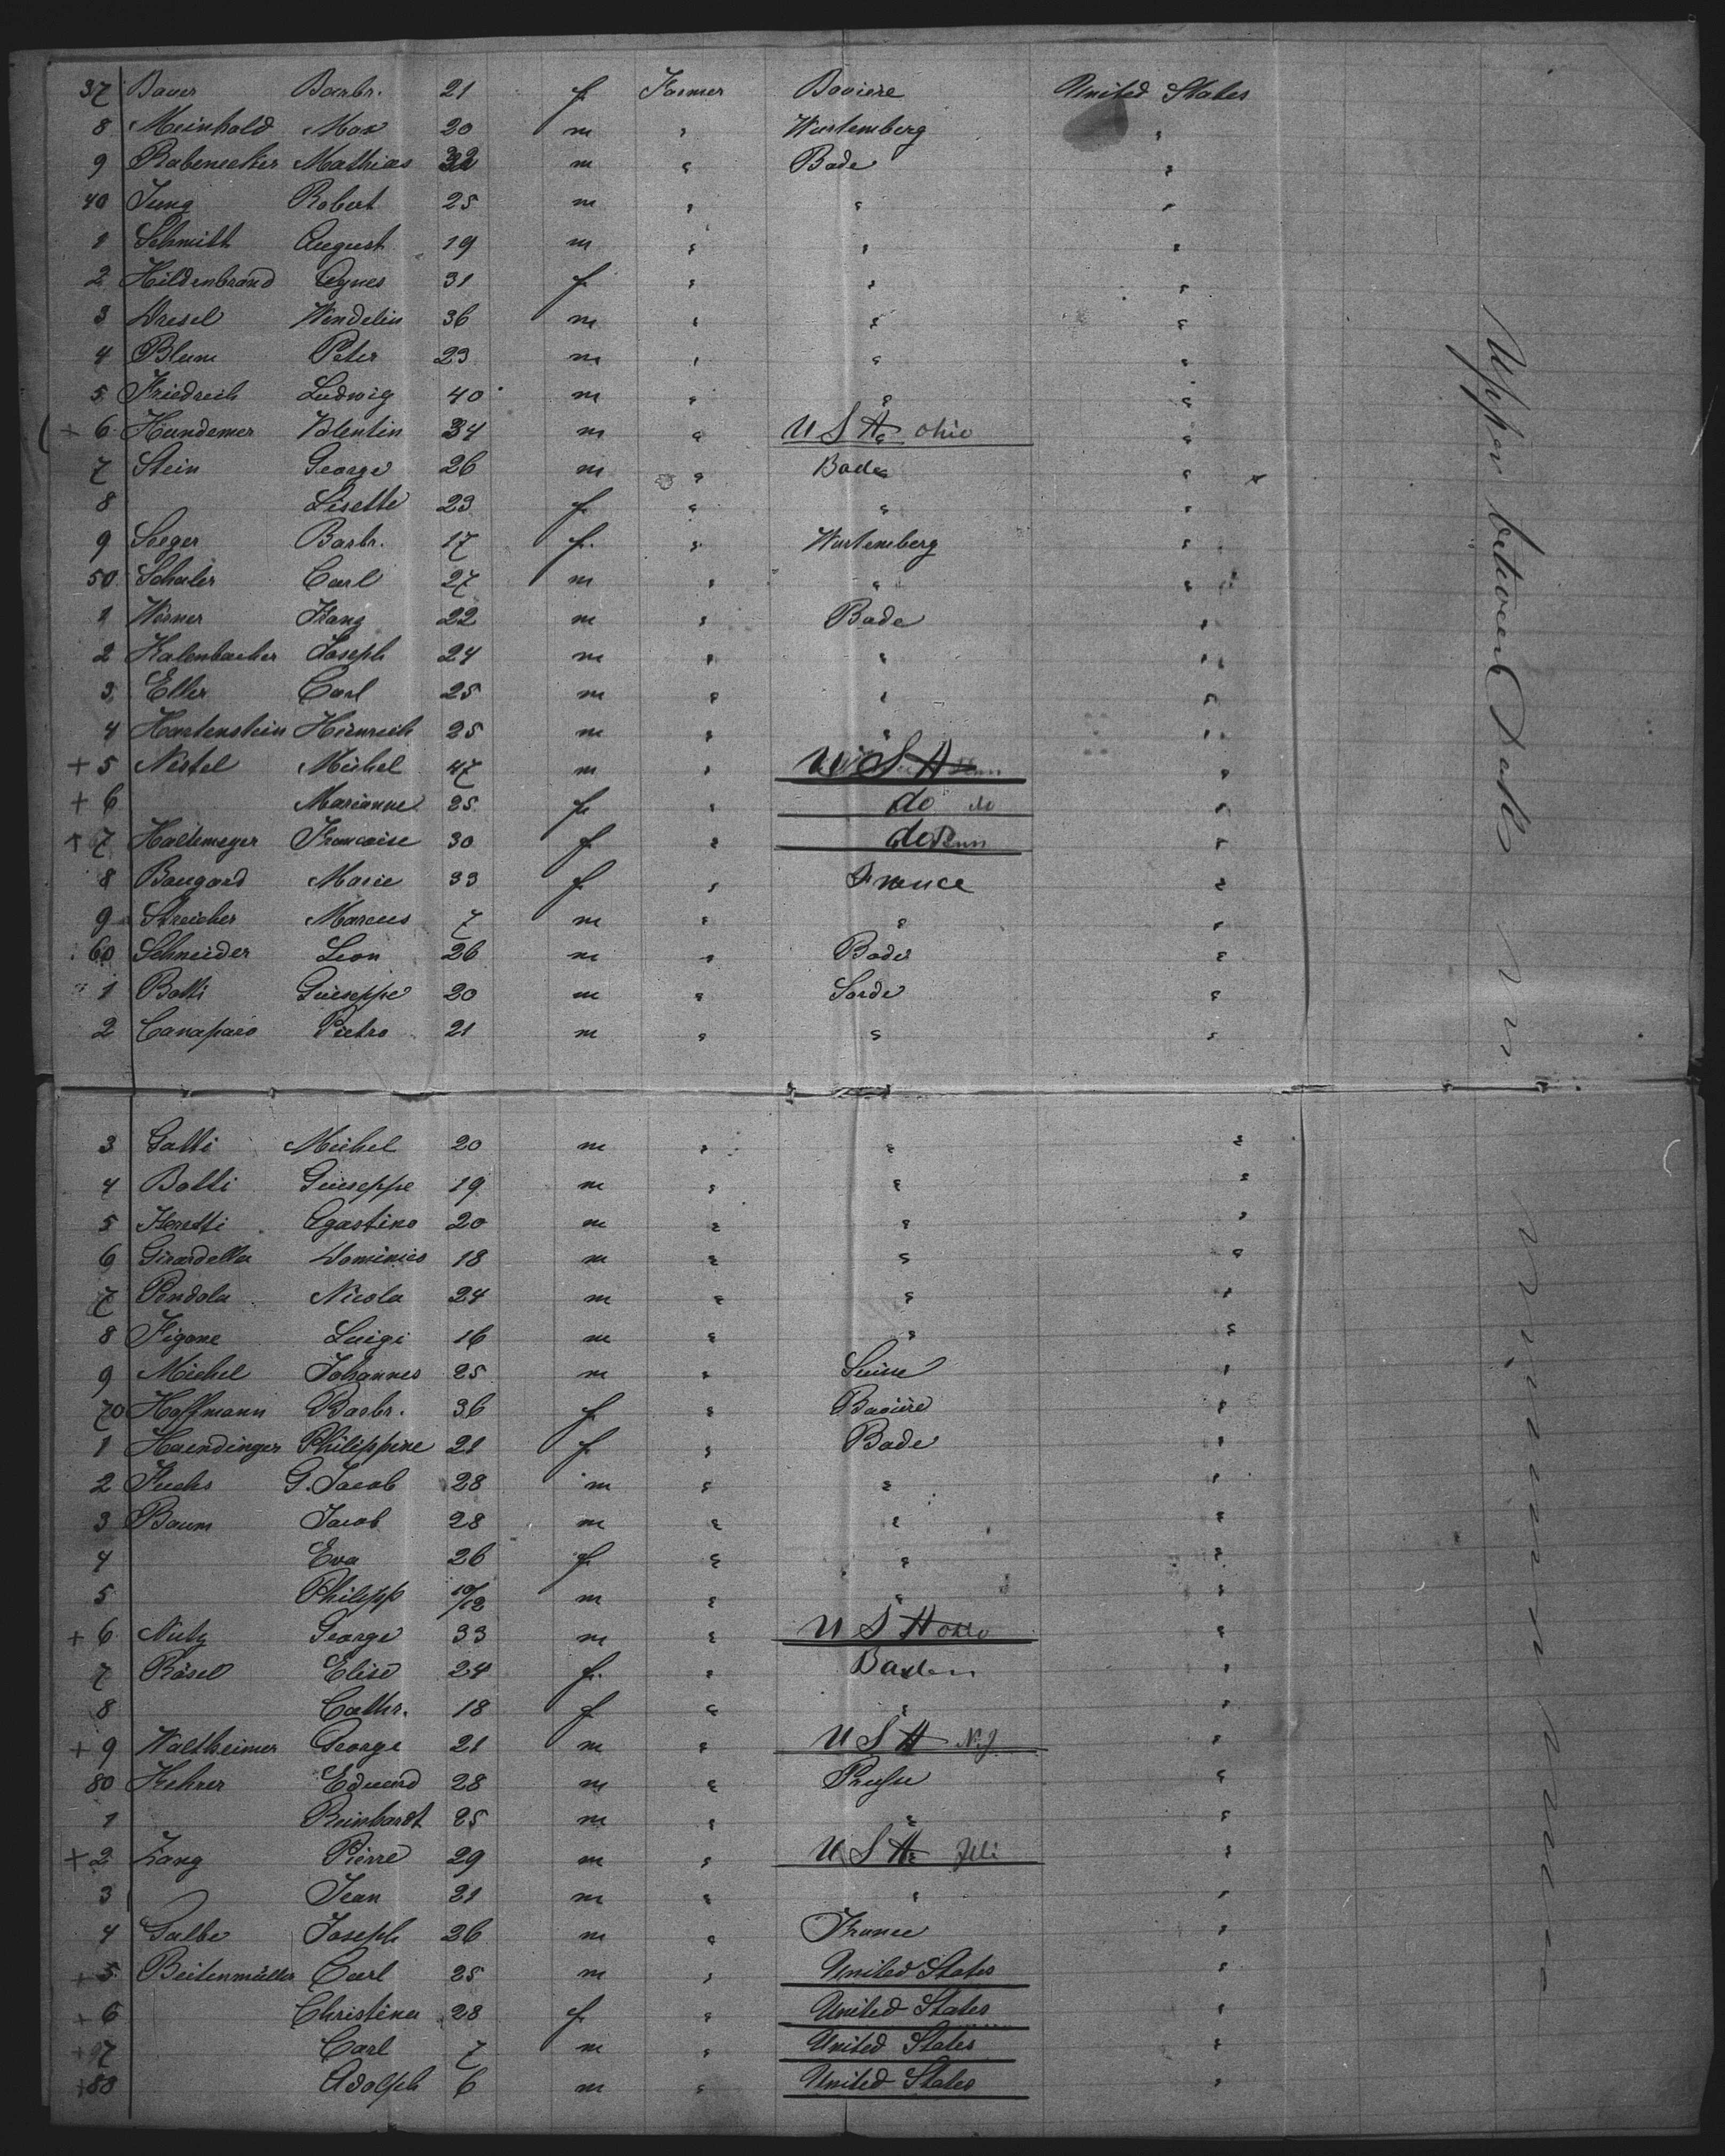 37 Bauer Barbr. 21 f. Farmer Baviere United States
8 Meinhold Max 20 m " Wurtemberg "
9 Rabenecker Mathias 32 m " Bade "
40 Jung Robert 25 m " " "
1 Schmitt August 19 m " " "
2 Hildenbrand Agnes 31 f. " " "
3 Dresel Wendelin 36 m " " "
4 Blum Peter 23 m " " "
5 Friedrich Ludwig 40 m " " "
+ 6 Hundemer Valentin 34 m " U S A Ohio "
7 Stein George 26 m " Bade "
8 Lisette 23 f. " " "
9 Seeger Barbr. 17 f. " Wurtemberg "
50 Schuler Carl 27 m " " "
1 Werner Franz 22 m " Bade "
2 Kalenbacher Joseph 24 m " " "
3 Eller Carl 25 m " " "
4 Hartenstein Heinrich 25 m " " "
+ 5 Nestel Michel 47 m " U S A "
+ 6 Marianne 25 f. " do do "
+ 7 Haltemeyer Francoise 30 f " do Penn "
8 Baugard Marie 33 f. " France "
9 Streicher Marcus 7 m " " "
60 Schneider Leon 26 m " Bade "
1 Botti Giuseppe 20 m " Sarde "
2 Canaparo Pietro 21 m " " "
3 Gatti Michel 20 m " " "
4 Botti Giuseppe 19 m " " "
5 Feretti Agostino 20 m " " "
6 Girardella Dominico 18 m " " "
7 Pendola Nicola 24 m " " "
8 Figone Luigi 16 m " " "
9 Michel Johannes 25 m " Suisse "
70 Hoffmann Barbr. 36 f. " Baviere "
1 Haendinger Philippine 21 f. " Bade "
2 Fuchs G. Jacob 28 m " " "
3 Baum Jacob 28 m " " "
4 Eva 26 f " " "
5 Philipp 10/12 m " " "
+ 6 Nutz George 33 m " U S A Ohio "
7 Räsel Elise 24 f. " Baden "
8 Cathr. 18 f " " "
+ 9 Waltheimer George 21 m " U S A N.J. "
80 Kehrer Eduard 28 m " Prusse "
1 Reinhardt 25 m " " "
+ 2 Zang Pierre 29 m " U S A Illi "
3 Jean 21 m " " "
4 Galbe Joseph 26 m " France "
+ 5 Beitenmüller Carl 25 m " United States "
+ 6 Christina 28 f. " United States "
+ 7 Carl 7 m " United States "
+ 88 Adolph 6 m " United States "
Upper between Decks